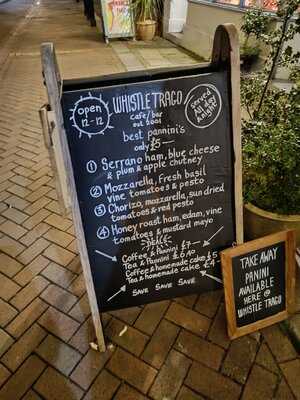 open
12-12
WHISTLE TRAGO
cafe/bar
est 2001
best pannini's
only £5
SERVED
All day
& night
① Serrano ham, blue cheese
& plum & apple chutney
② Mozzarella, Fresh basil
vine tomatoes & pesto
③ Chorizo, mozarella, sun dried
tomatoes & red pesto
④ Honey roast ham, edam, vine
tomatoes & mustard mayo
DEALS
Coffee & Pannini £7
Tea & Pannini £6.40
Coffee & homemade cake £5
Tea & homemade cake £4
SAVE SAVE SAVE
TAKE AWAY
PANINI
AVAILABLE
HERE @
WHISTLE TRAGO